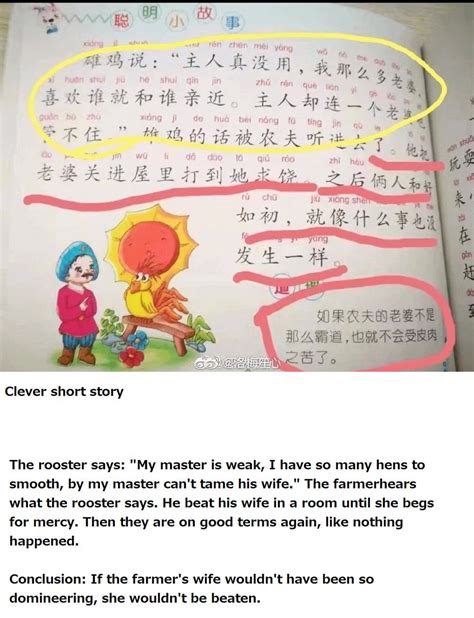 聪明小故事
xióng jī shuō rén zhēn méi yòng
雄鸡说：“主人真没用，我那么多老婆，
xǐ huān shuí jiù hé shuí qīn jìn zhǔ rén què lián yí gè
喜欢谁就和谁亲近。主人却连一个老婆
guǎn bú zhù xióng jī de huà bèi nóng fū tīng jìn qù
管不住。”雄鸡的话被农夫听进去了。他把
jìn wū lǐ dǎ dào tā qiú ráo zhī hòu
老婆关进屋里打到她求饶。之后俩人和好
rú chū jiù xiàng shén
如初，就像什么事也没
yí yàng
发生一样。
道
如果农夫的老婆不是
那么霸道，也就不会受皮肉
之苦了。
玩
来
在
赶
Clever short story
The rooster says: "My master is weak, I have so many hens to
smooth, by my master can't tame his wife." The farmerhears
what the rooster says. He beat his wife in a room until she begs
for mercy. Then they are on good terms again, like nothing
happened.
Conclusion: If the farmer's wife wouldn't have been so
domineering, she wouldn't be beaten.